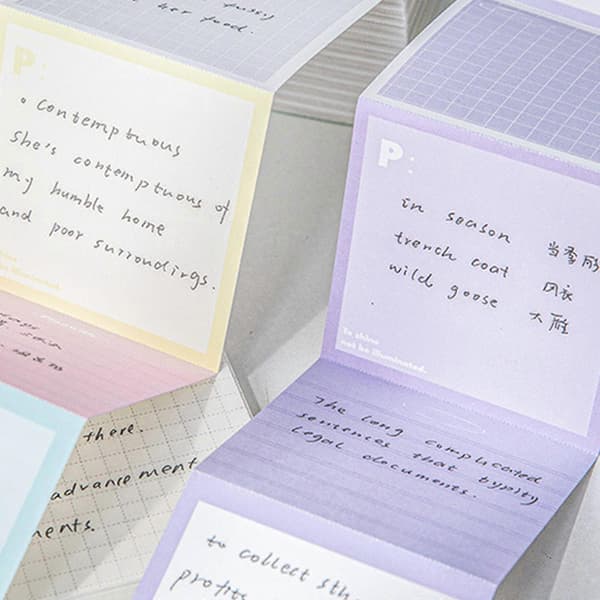 her food.
P:
• contemptuous
she's contemptuous of
my humble home
and poor surroudirgs.
not be illuminated.
there.
advancement
ments.
P:
in season 当季的
trench coat 风衣
wild goose 大雁
To shine
not be illuminated.
The long complicated
sentences that typity
legal documents.
to collect sth
profits